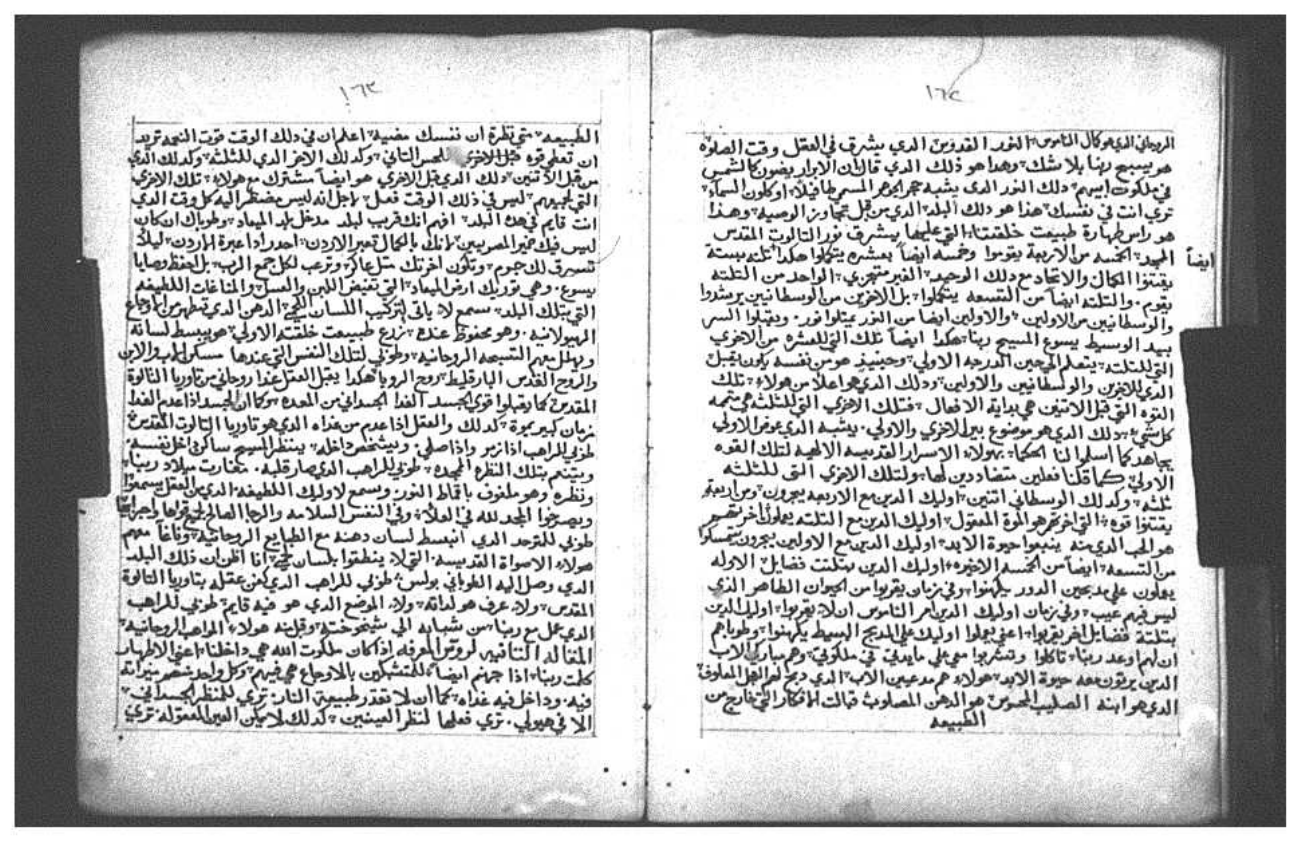 ١٦٢
الروحاني الدي هو كال الناموس النور القدوس الدي يشرف في العقل وقت الصلوة
هو يسبح ربنا بلا شك وهدا هو ذلك الدي قال ان الابرار يضون كالشمس
في ملكوت ابيهم دلك النور الدى يشبه حجر الجوهر المسمي اوكلون السماء
تري انت في نفسك هدا هو دلك البلد الدي من قبل تجاوز الوصيه وهدا
هو راس طهارة طبيعت خلقتنا التي عليها يشرف نور التالوت المقدس
المجيد الخمسه من الاربعة يقوموا وخمسه ايضاً بعشره يتكلوا هكدا تلته بستة
ايضاً
يقتنوا الكمال والاتحاد مع دلك الوحيد الغير متجزي الواحد من التلته
يقوم والتلته ايضاً من التسعه يتكلوا بل الاخرين من الوسطانيين يرشدوا
والوسطانيين من الاولين والاولين ايضا من النور يمتلوا نور ويقبلوا السر
بيد الوسيط يسوع المسيح ربنا هكدا ايضاً تلك التي للعشره من الاخري
التي للتلته يتعلم المجيين الدرجه الاولي وحينيذ هو من نفسه يكون يقبل
الدي للاخرين والوسطانيين والاولين ودلك الدي هو اعلا من هولاء تلك
القوه التي قبل الاتنين هي بداية الافعال فتلك الاخري التي للثلثه هي متممه
كل شيء دلك الدي هو موضوع بين الاخري والاولي يشبه الدي عوض الاولي
يجاهد كما اسلموا لنا الحكما بهولاء الاسرار القديسه الالهيه لتلك القوه
الاولي كما قلنا فعلين متضاددين لها ولتلك الاخري التي للثلثه
ثلثه وكدلك الوسطاني اتنين اوليك الدين مع الاربعه يجرون ومن اربعة
يقتنوا قوه التي اخرتهم هو الموة المعقول اوليك الدين مع التلته يعملون اخرتهم
هو الحب الدي منه ينبعوا حيوة الابد اوليك الدين مع الاولين يجرون يتمسكوا
من التسعه ايضاً من الخمسه الاخيره اوليك الدين بتلتت فضايل الاوله
يعلون علي مدبحين الدور يكهنوا وفي زمان يقربوا من الحيوان الطاهر الدي
ليس فيهم عيب وفي زمان اوليك الدين امر الناموس ان لا يقربوا اوليك الدين
بتلتة فضايل اخر يقربوا اعني يعلوا اوليك علي المدبح البسيط يكهنوا وطوباهم
ان لهم وعد ربنا تاكلوا وتشربوا معي علي مايدتي في ملكوتي وهم مباركي الاب
الدين يرتون معه حيوة الابد هولاء هم مدعيين الاب الدي دبح لهم العجل المعلوف
الدي هو ابنه الصليب المحسوس هو الدهن المصلوب قبالت الافكار التي خارج من
الطبيعه
١٦٣
الطبيعه متي نظرة ان نفسك مضيه اعلم ان في دلك الوقت قوت النعمه تريد
ان تعطي قوه قبل الاخري للحس التاني وكدلك الاخر الدي للثلثه وكدلك الدي
من قبل الاتنين دلك الدي قبل الاخري هو ايضاً مشترك مع هولاء تلك الاخري
التي لجميعهم ليس في ذلك الوقت فعل لاجل انه ليس مضطر اليه كل وقت الدي
انت قايم في هدا البلد افهم انك قريب لبلد مدخل بلد الميعاد وطوباك ان كان
ليس فيك خمير المصريين لانك بالكمال تعبر الاردن احدر ادا عبرة الاردن ليلا
تسرق لك جرم وتكون اخرتك مثل عاكر وترعب لكل جمع الرب بل احفظ وصايا
يسوع وهي توريك ارض الميعاد التي تفيض اللبن والعسل والمناغات اللطيفه
التي بتلك البلد سمع لا ياتي لتركيب اللسان اللحمي الدهن الدي تطهر من الاوجاع
الهيولانيه وهو محفوظ عنده زرع طبيعت خلقته الاولي هو يبسط لسانه
ويهلل معهم التسبحه الروحانيه وطوبي لتلك النفس التي عندها مسكن الاب والابن
والروح القدس البارقليط روح الرويا هكدا يقبل العقل غدا روحاني من تاوريا التالوة
المقدس كما يقبلوا قوي الجسد الغدا الجسداني من المعده وكما ان الجسد ادا عدم الغدا
زمان كبير يموة كدلك والعقل ادا عدم من غداه الدي هو تاوريا التالوت المقدس
طوبي للراهب ادا زمر وادا صلي ويشخص داخله ينظر المسيح ساكن داخل نفسه
ويتنعم بتلك النظره المجيده طوبي للراهب الدي صار قلبه مغارت ميلاد ربنا
ونظره وهو ملفوف باقماط النور ويسمع لاوليك اللطيفه الدي من العقل يسمعوا
ويصرخوا المجد لله في العلاء وفي النفس السلامه والرجا الصالح
طوبي للمتوحد الدي انبسط لسان دهنه مع الطبايع الروحانيه وفاغا معهم
هولاء الاصواة القديسه التي لا ينطقوا بلسان لحمي انا اظن ان ذلك البلد
الدي وصل اليه الطوباني بولس طوبي للراهب الدي كمن عقله بتاوريا التالوة
المقدس ولا عرف هو لداته ولا الموضع الدي هو فيه قايم طوبي للراهب
الدي عمل مع ربنا من شبابه الي شيخوخته وقل منه هولاء المواهب الروحانيه
المقاله التانيه لروس المعرفه اذ كان ملكوت الله هي داخلنا اعني الاطهار
كلمت ربنا ادا جهنم ايضاً للمتشبكين بالاوجاع هي فيهم وكل واحد منهم ميراته
فيه وداخل فيه غداه كما ان لا تقدر طبيعة النار تري للنظر الجسداني
الا في هيولي تري فعلها لنظر العينين كدلك لا يمكن العين المعقوله تري